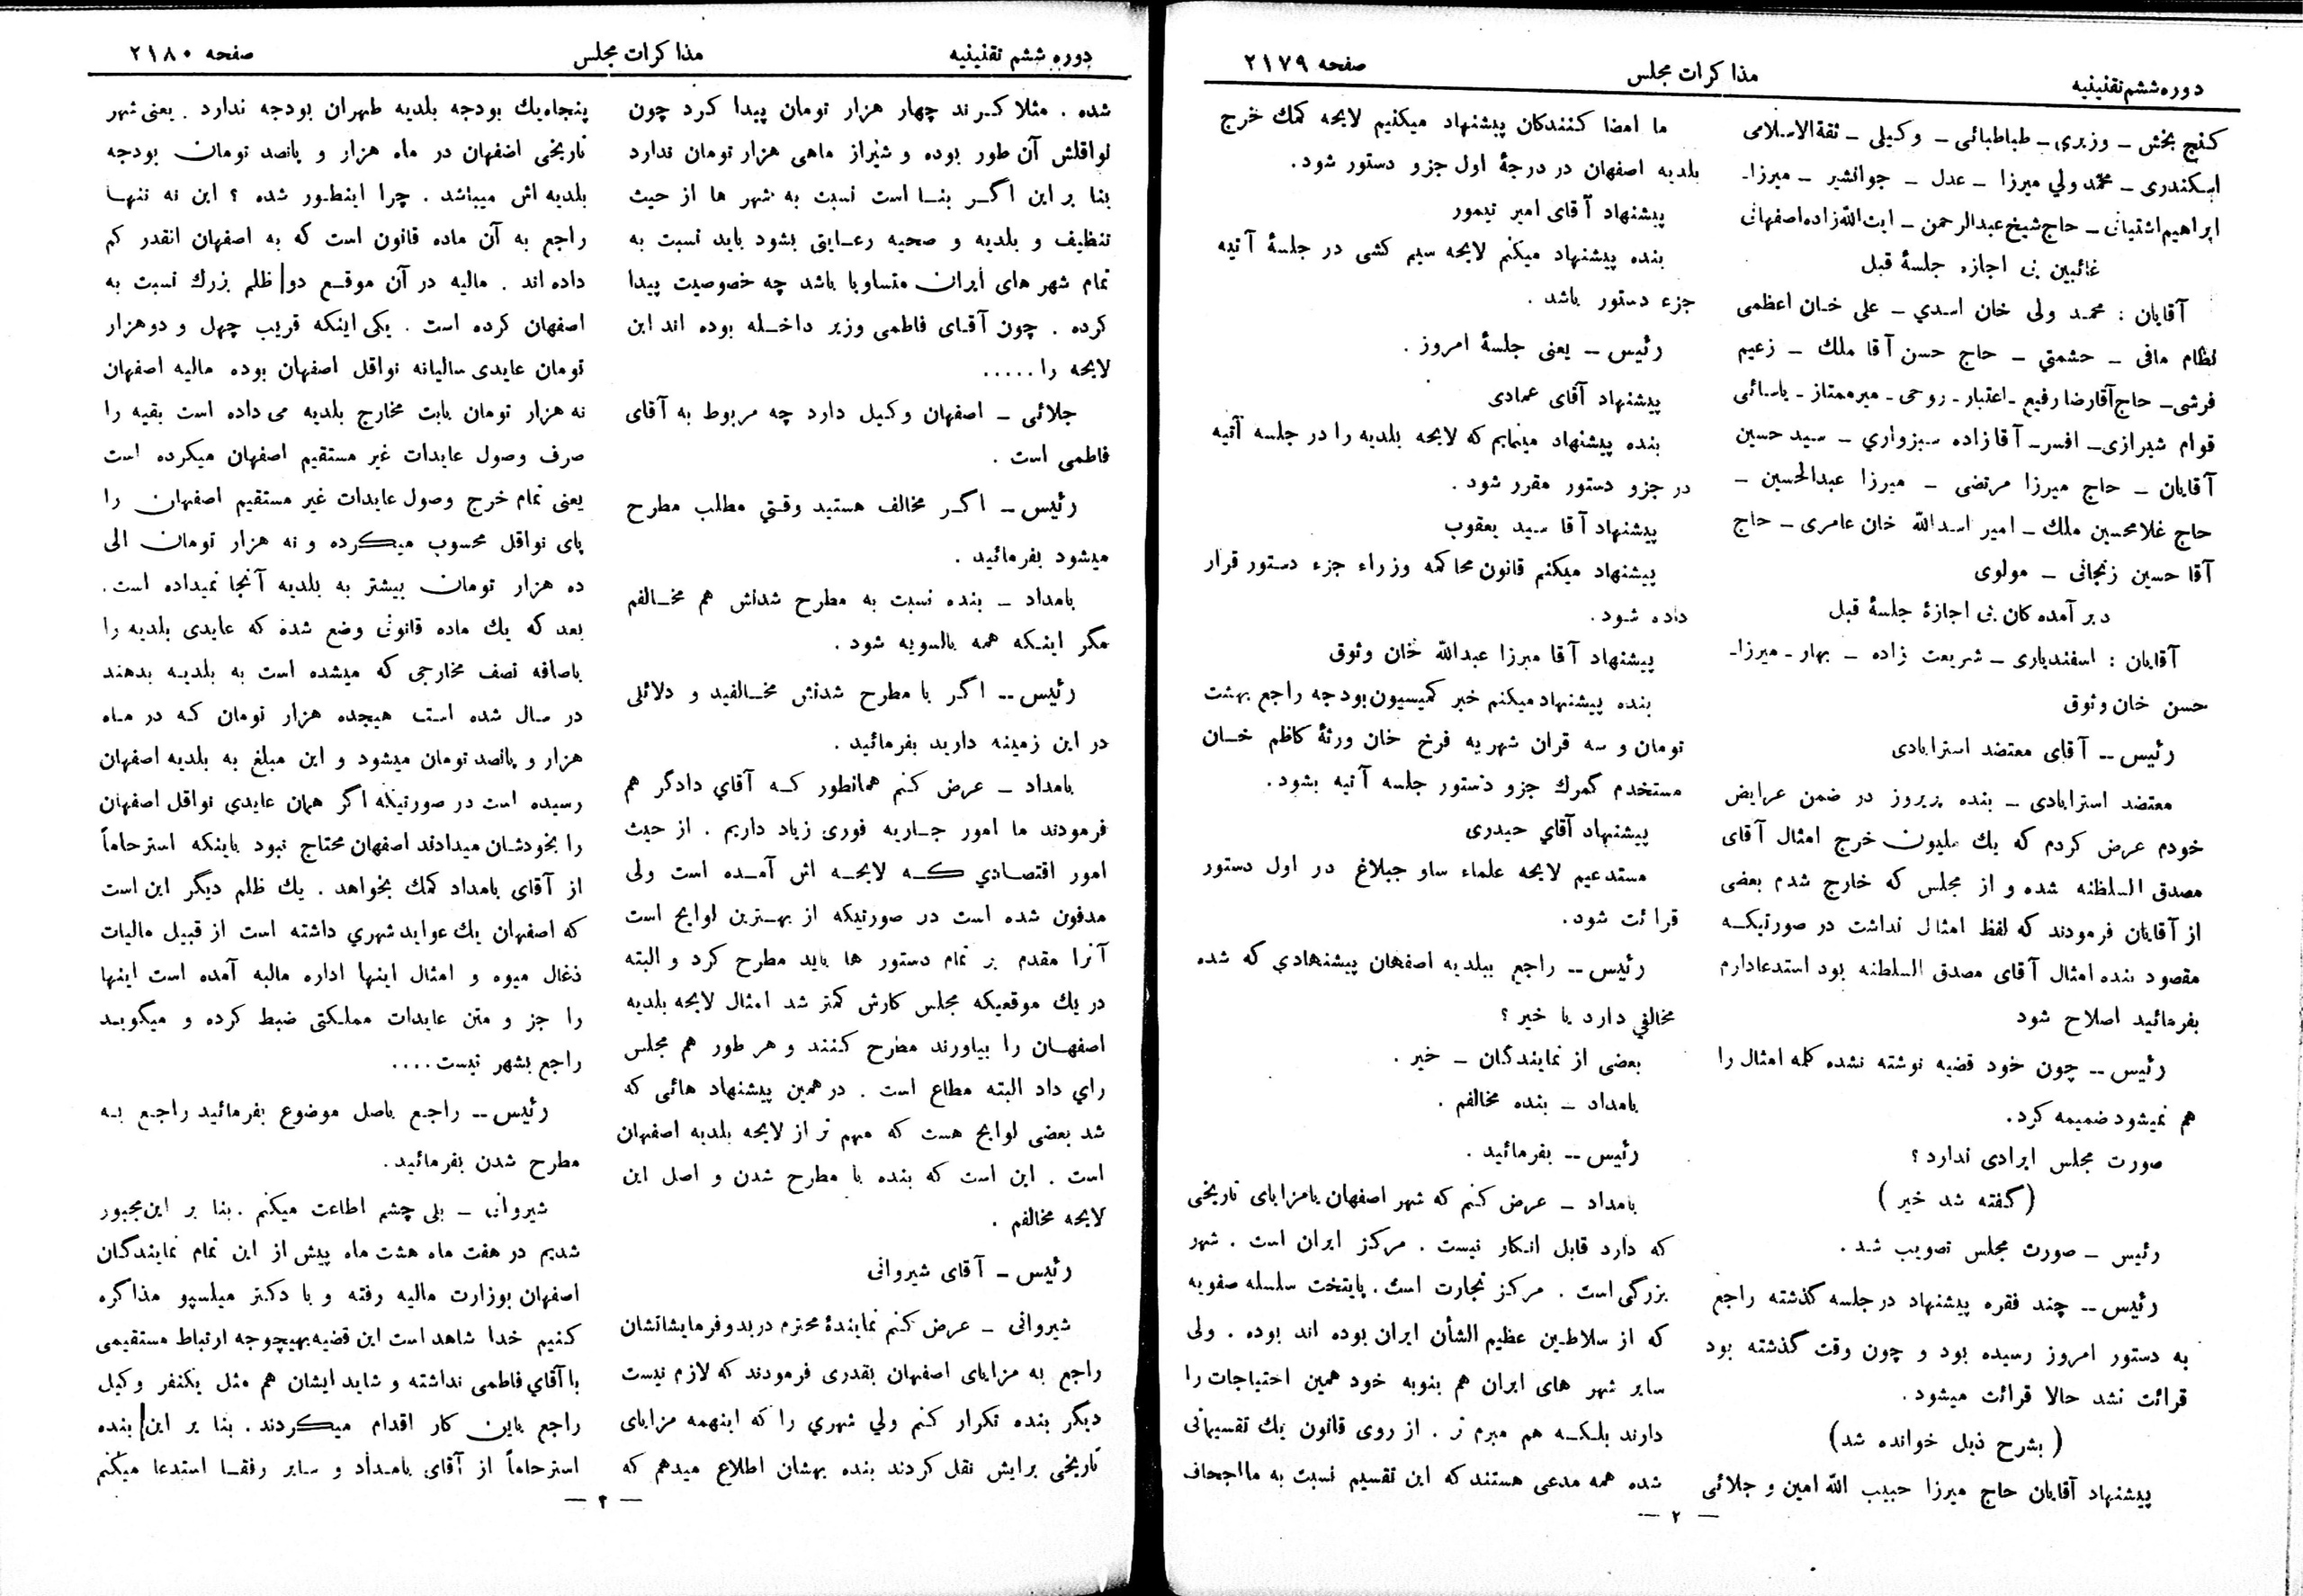 دوره ششم تقنینیه
مذاکرات مجلس
صفحه ۲۱۷۹
گنج بخش ـ وزیری ـ طباطبائی ـ وکیلی ـ ثقة الاسلامی
اسکندری ـ محمد ولی میرزا ـ عدل ـ جوانشیر ـ میرزاـ
ابراهیم اشتیانی ـ حاج شیخ عبدالرحمن ـ ایت الله زاده اصفهانی
غائبین بی اجازه جلسهٔ قبل
آقایان : محمد ولی خان اسدی ـ علی خان اعظمی
نظام مافی ـ حشمتی ـ حاج حسن آقا ملك ـ زعیم
فرشی ـ حاج آقارضا رفیع ـ اعتبار ـ روحی ـ میرممتاز ـ یاسائی
قوام شیرازی ـ افسر ـ آقازاده سبزواری ـ سید حسین
آقایان ـ حاج میرزا مرتضی ـ میرزا عبدالحسین ـ
حاج غلامحسین ملك ـ امیر اسدالله خان عامری ـ حاج
آقا حسین زنجانی ـ مولوی
دیر آمده کان بی اجازهٔ جلسهٔ قبل
آقایان : اسفندیاری ـ شریعت زاده ـ بهار ـ میرزاـ
حسن خان وثوق
رئیس ــ آقای معتضد استرابادی
معتضد استرابادی ـ بنده پریروز در ضمن عرایض
خودم عرض کردم که یك ملیون خرج امثال آقای
مصدق السلطنه شده و از مجلس که خارج شدم بعضی
از آقایان فرمودند که لفظ امثال نداشت در صورتیکه
مقصود بنده امثال آقای مصدق السلطنه بود استدعادارم
بفرمائید اصلاح شود
رئیس ــ چون خود قضیه نوشته نشده کلمه امثال را
هم نمیشود ضمیمه کرد.
صورت مجلس ایرادی ندارد ؟
(گفته شد خیر)
رئیس ـ صورت مجلس تصویب شد .
رئیس ــ چند فقره پیشنهاد در جلسه گذشته راجع
به دستور امروز رسیده بود و چون وقت گذشته بود
قرائت نشد حالا قرائت میشود .
( بشرح ذیل خوانده شد)
پیشنهاد آقایان حاج میرزا حبیب الله امین و جلائی
ما امضا کنندگان پیشنهاد میکنیم لایحه کمك خرج
بلدیه اصفهان در درجهٔ اول جزو دستور شود.
پیشنهاد آقای امیر تیمور
بنده پیشنهاد میکنم لایحه سیم کشی در جلسهٔ آتیه
جزء دستور باشد .
رئیس ـ یعنی جلسهٔ امروز .
پیشنهاد آقای عمادی
بنده پیشنهاد مینمایم که لایحه بلدیه را در جلسه آتیه
در جزو دستور مقرر شود .
پیشنهاد آقا سید یعقوب
پیشنهاد میکنم قانون محاکمه وزراء جزء دستور قرار
داده شود.
پیشنهاد آقا میرزا عبدالله خان وثوق
بنده پیشنهاد میکنم خبر کمیسیون بودجه راجع بهشت
تومان و سه قران شهریه فرخ خان ورثهٔ کاظم خان
مستخدم گمرك جزو دستور جلسه آتیه بشود.
پیشنهاد آقای حیدری
مستدعیم لایحه علماء ساوجبلاغ در اول دستور
قرائت شود.
رئیس ــ راجع ببلدیه اصفهان پیشنهادی که شده
مخالفی دارد یا خیر ؟
بعضی از نمایندگان ـ خیر .
بامداد ـ بنده مخالفم .
رئیس ــ بفرمائید .
بامداد ـ عرض کنم که شهر اصفهان بامزایای تاریخی
که دارد قابل انکار نیست . مرکز ایران است . شهر
بزرگی است . مرکز تجارت است. پایتخت سلسله صفویه
که از سلاطین عظیم الشأن ایران بوده اند بوده . ولی
سایر شهر های ایران هم بنوبه خود همین احتیاجات را
دارند بلکه هم مبرم تر . از روی قانون یك تقسیماتی
شده همه مدعی هستند که این تقسیم نسبت به مااجحاف
— ۲ —
دوره ششم تقنینیه
مذاکرات مجلس
صفحه ۲۱۸۰
شده . مثلا کرند چهار هزار تومان پیدا کرد چون
نواقلش آن طور بوده و شیراز ماهی هزار تومان ندارد
بنا بر این اگر بنا است نسبت به شهر ها از حیث
تنظیف و بلدیه و صحیه رعایتی بشود باید نسبت به
تمام شهر های ایران متساویا باشد چه خصوصیت پیدا
کرده . چون آقای فاطمی وزیر داخله بوده اند این
لایحه را .....
جلائی ـ اصفهان وکیل دارد چه مربوط به آقای
فاطمی است .
رئیس ـ اگر مخالف هستید وقتی مطلب مطرح
میشود بفرمائید .
بامداد ـ بنده نسبت به مطرح شدنش هم مخالفم
مگر اینکه همه بالسویه شود .
رئیس ــ اگر با مطرح شدنش مخالفید و دلائلی
در این زمینه دارید بفرمائید .
بامداد ـ عرض کنم همانطور که آقای دادگر هم
فرمودند ما امور جاریه فوری زیاد داریم . از حیث
امور اقتصادی که لایحه اش آمده است ولی
مدفون شده است در صورتیکه از بهترین لوایح است
آنرا مقدم بر تمام دستور ها باید مطرح کرد و البته
در یك موقعیکه مجلس کارش کمتر شد امثال لایحه بلدیه
اصفهان را بیاورند مطرح کنند و هر طور هم مجلس
رای داد البته مطاع است . در همین پیشنهاد هائی که
شد بعضی لوایح هست که مهم تر از لایحه بلدیه اصفهان
است . این است که بنده با مطرح شدن و اصل این
لایحه مخالفم .
رئیس ـ آقای شیروانی
شیروانی ـ عرض کنم نمایندهٔ محترم در بدو فرمایشاتشان
راجع به مزایای اصفهان بقدری فرمودند که لازم نیست
دیگر بنده تکرار کنم ولی شهری را که اینهمه مزایای
تاریخی برایش نقل کردند بنده بهشان اطلاع میدهم که
پنجاه یك بودجه بلدیه طهران بودجه ندارد . یعنی شهر
تاریخی اصفهان در ماه هزار و پانصد تومان بودجه
بلدیه اش میباشد . چرا اینطور شده ؟ این نه تنها
راجع به آن ماده قانون است که به اصفهان انقدر کم
داده اند . مالیه در آن موقع دو ظلم بزرك نسبت به
اصفهان کرده است . یکی اینکه قریب چهل و دو هزار
تومان عایدی سالیانه نواقل اصفهان بوده مالیه اصفهان
نه هزار تومان بابت مخارج بلدیه می داده است بقیه را
صرف وصول عایدات غیر مستقیم اصفهان میکرده است
یعنی تمام خرج وصول عایدات غیر مستقیم اصفهان را
پای نواقل محسوب میکرده و نه هزار تومان الی
ده هزار تومان بیشتر به بلدیه آنجا نمیداده است.
بعد که یك ماده قانونی وضع شده که عایدی بلدیه را
باضافه نصف مخارجی که میشده است به بلدیه بدهند
در سال شده است هیجده هزار تومان که در ماه
هزار و پانصد تومان میشود و این مبلغ به بلدیه اصفهان
رسیده است در صورتیکه اگر همان عایدی نواقل اصفهان
را بخودشان میدادند اصفهان محتاج نبود باینکه استرحاماً
از آقای بامداد کمك بخواهد . یك ظلم دیگر این است
که اصفهان یك عواید شهری داشته است از قبیل مالیات
ذغال میوه و امثال اینها اداره مالیه آمده است اینها
را جز و متن عایدات مملکتی ضبط کرده و میگوید
راجع بشهر نیست ....
رئیس ــ راجع باصل موضوع بفرمائید راجع به
مطرح شدن بفرمائید.
شیروانی ـ بلی چشم اطاعت میکنم . بنا بر این مجبور
شدیم در هفت ماه هشت ماه پیش از این تمام نمایندگان
اصفهان بوزارت مالیه رفته و با دکتر میلسپو مذاکره
کنیم خدا شاهد است این قضیه بهیچوجه ارتباط مستقیمی
با آقای فاطمی نداشته و شاید ایشان هم مثل یکنفر وکیل
راجع باین کار اقدام میکردند . بنا بر این بنده
استرحاماً از آقای بامداد و سایر رفقا استدعا میکنم
— ۲ —